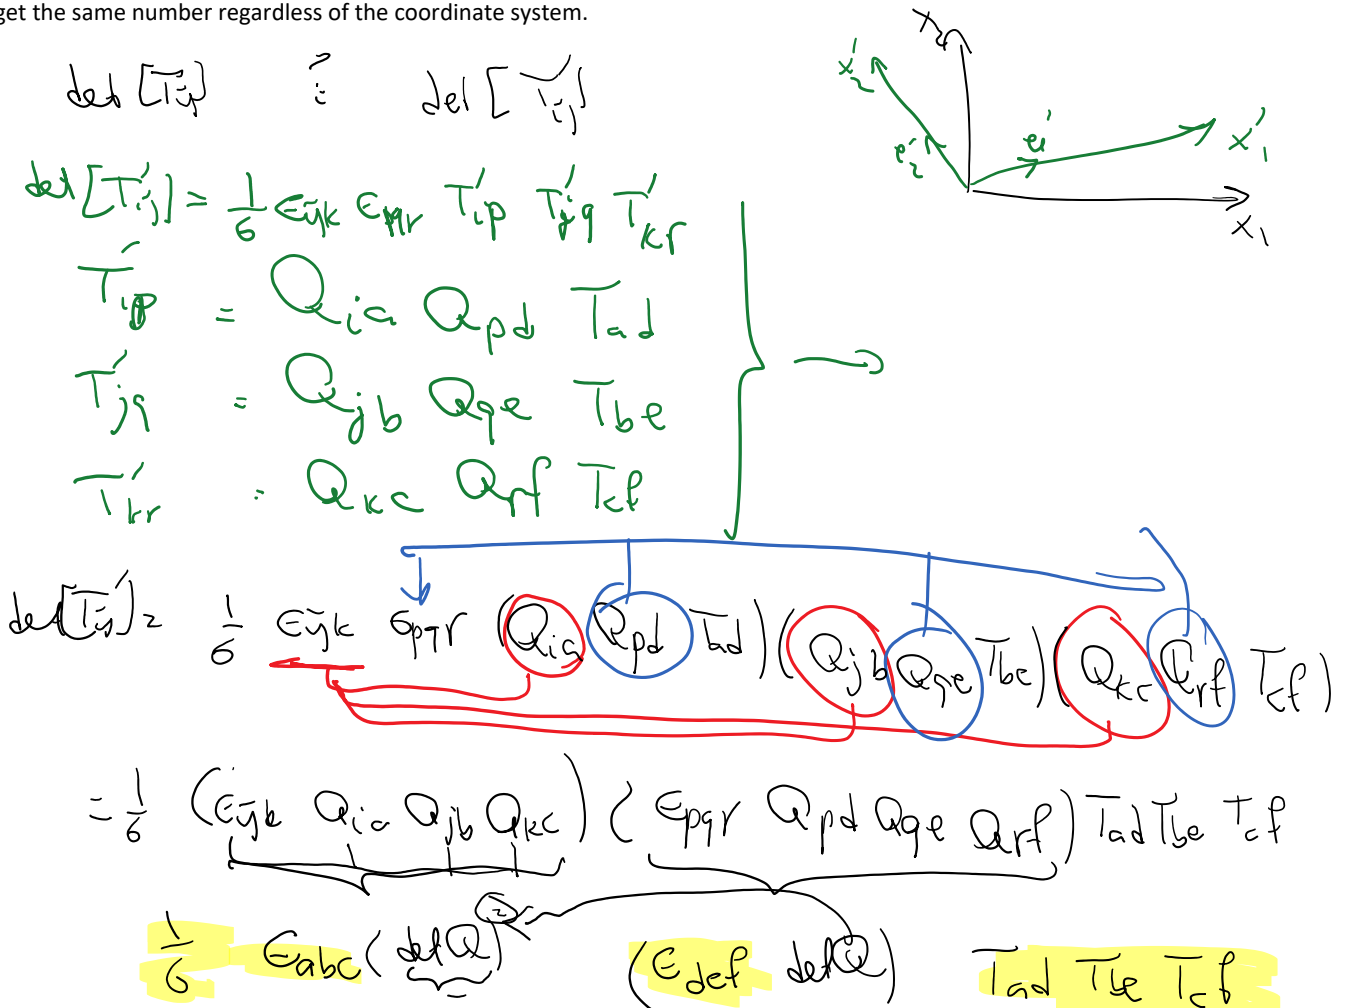 get the same number regardless of the coordinate system.
det [Tij] ?= det [T'ij]
x2
x'2
e'2
e'1
x'1
x1
det [T'ij] = 1/6 ϵijk ϵpqr T'ip T'jq T'kr
T'ip = Qia Qpd Tad
T'jq = Qjb Qqe Tbe
T'kr = Qkc Qrf Tcf
det[T'ij] = 1/6 ϵijk ϵpqr (Qia Qpd Tad)(Qjb Qqe Tbe)(Qkc Qrf Tcf)
= 1/6 (ϵijk Qia Qjb Qkc) (ϵpqr Qpd Qqe Qrf) Tad Tbe Tcf
1/6 ϵabc (det Q)² (ϵdef det Q) Tad Tbe Tcf